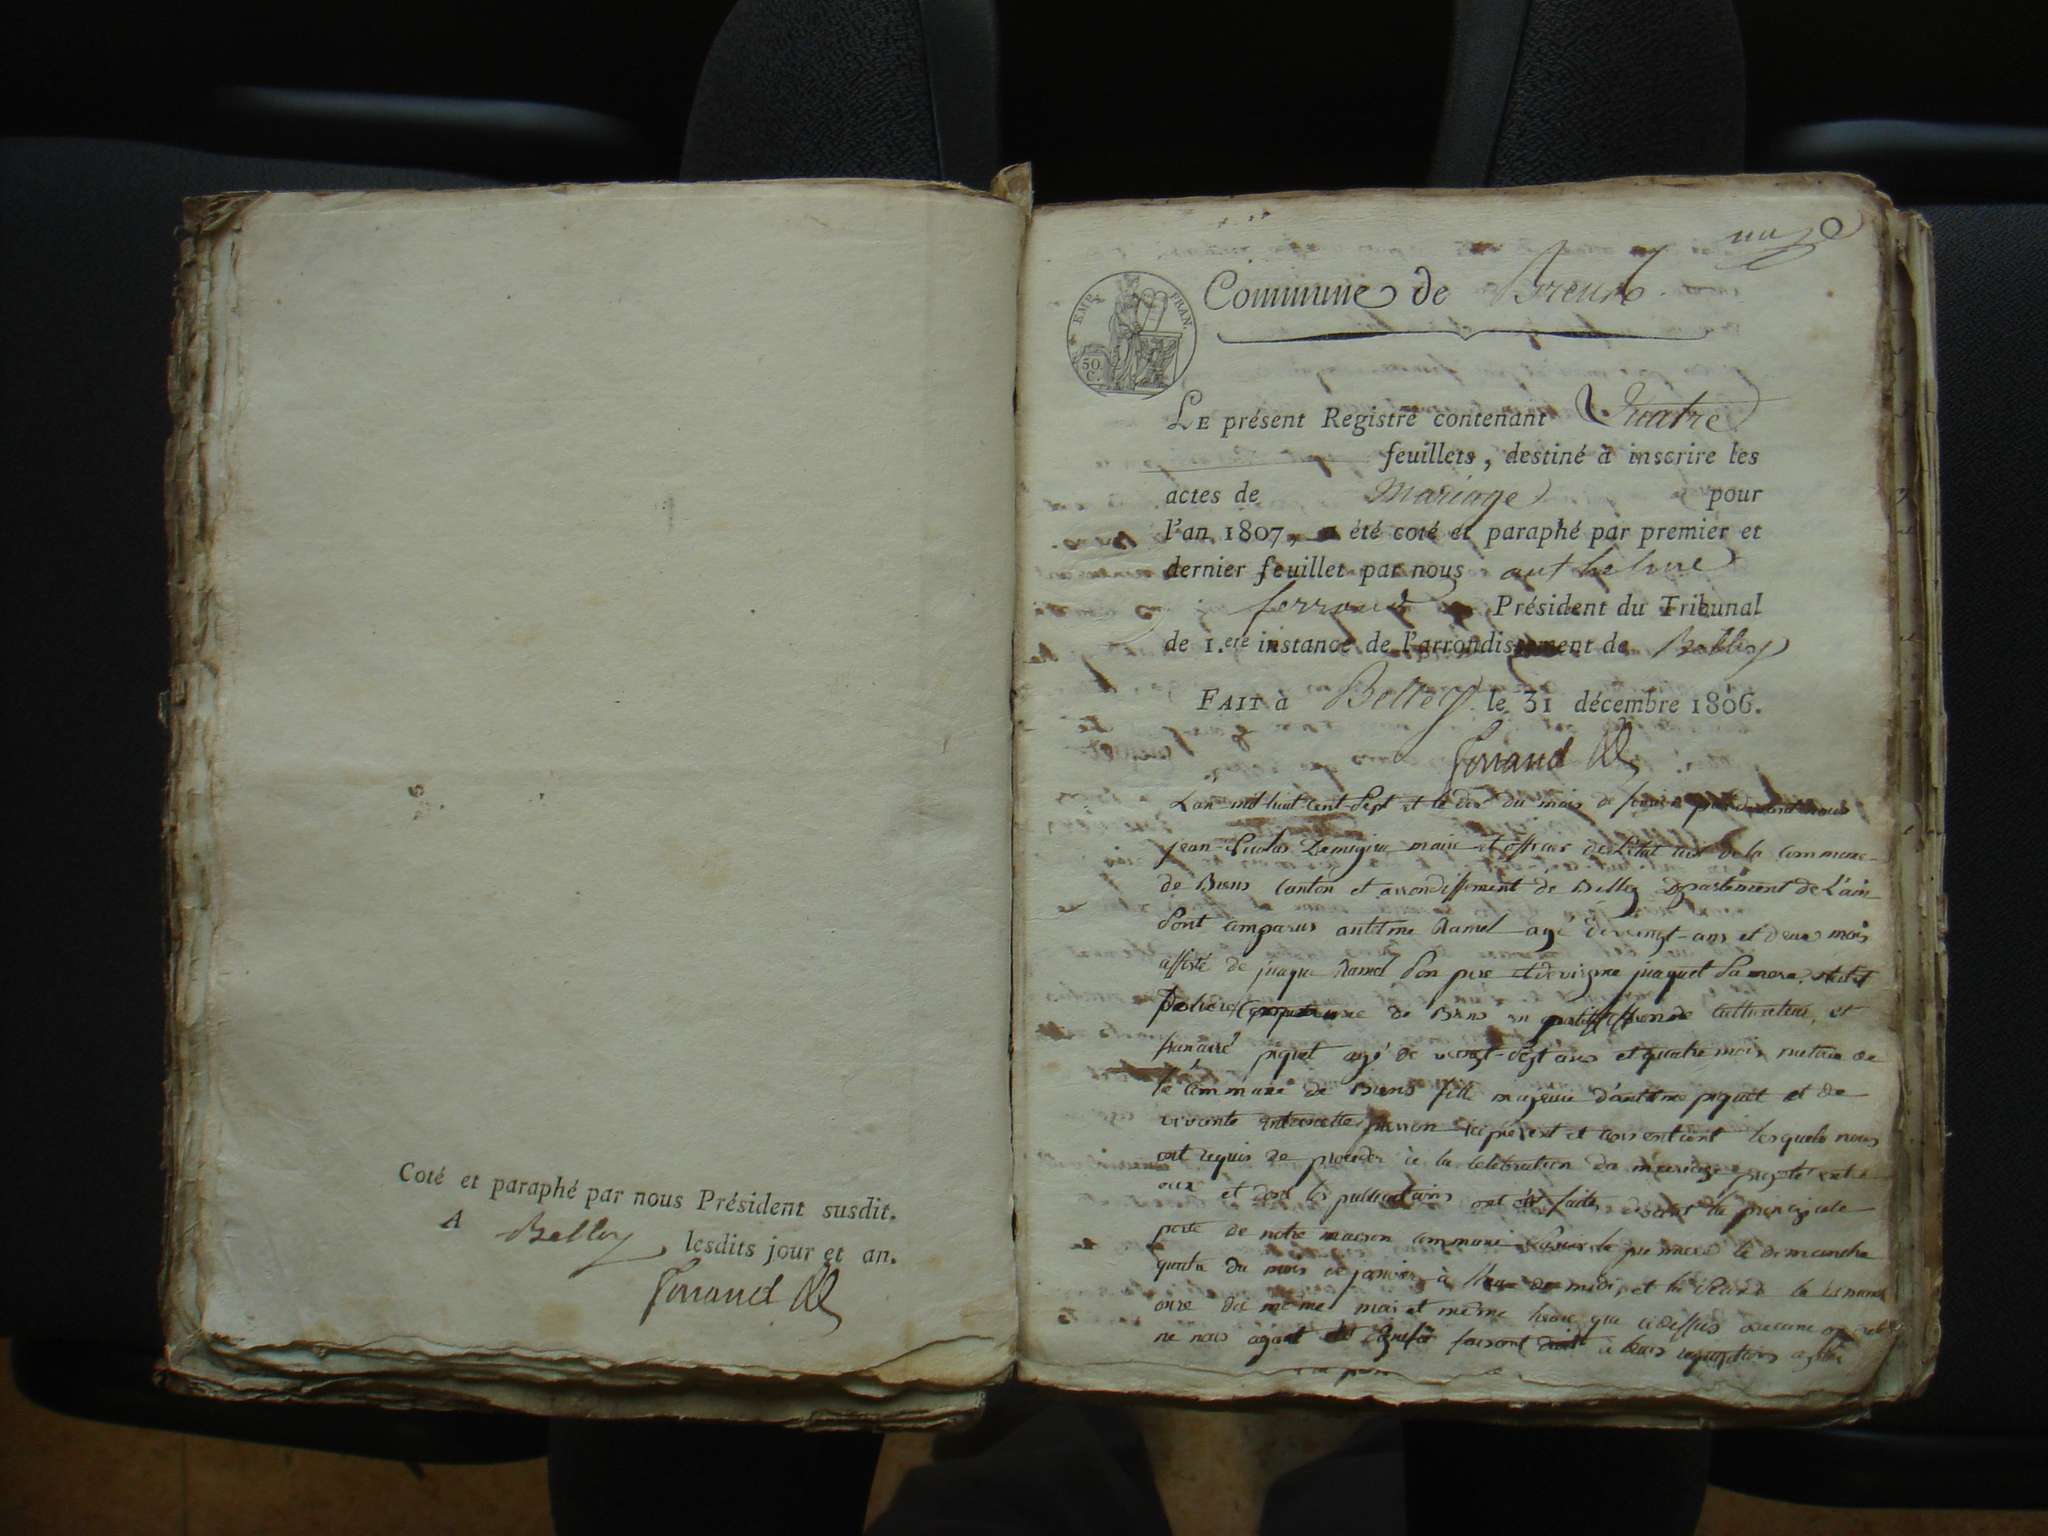 Coté et paraphé par nous Président susdit.
A Belley, lesdits jour et an.
Ferraud
une
Commune de Brens
EMP. FRAN.
50 C.
LE présent Registre contenant Quatre
feuillets, destiné à inscrire les
actes de mariage pour
l'an 1807, a été coté et paraphé par premier et
dernier feuillet par nous anthelme
ferraud Président du Tribunal
de 1.ere instance de l'arrondissement de Belley
FAIT à Belley le 31 décembre 1806.
Ferraud
L'an mil huit cent Sept et le dix du mois de pardevant nous
jean maire et officier de l'état civil de la Commune
de Brens Canton et arrondissement de Belley département de L'ain
Sont comparus antelme Ramel agé de vingt-ans et deux mois
assisté de jaque Ramel Son pere et de juaquet Sa mere
de Brens en cultivateur, et
piquet agé de vingt-sept ans et quatre mois native de
la Commune de Brens fille majeure d'antelme piquet et de
vivante antoinette ici présent et consentant lesquels nous
ont requis de proceder à la celebration du mariage projeté entre
eux et dont les publications ont été faites devant la principale
porte de notre maison commune la premiere le dimanche
quatre du mois de janvier à l'heure de midi, et la seconde le dimanche
onze du même mois et même heure que cidessus aucune
ne nous ayant été faisant droit à leurs requisitions